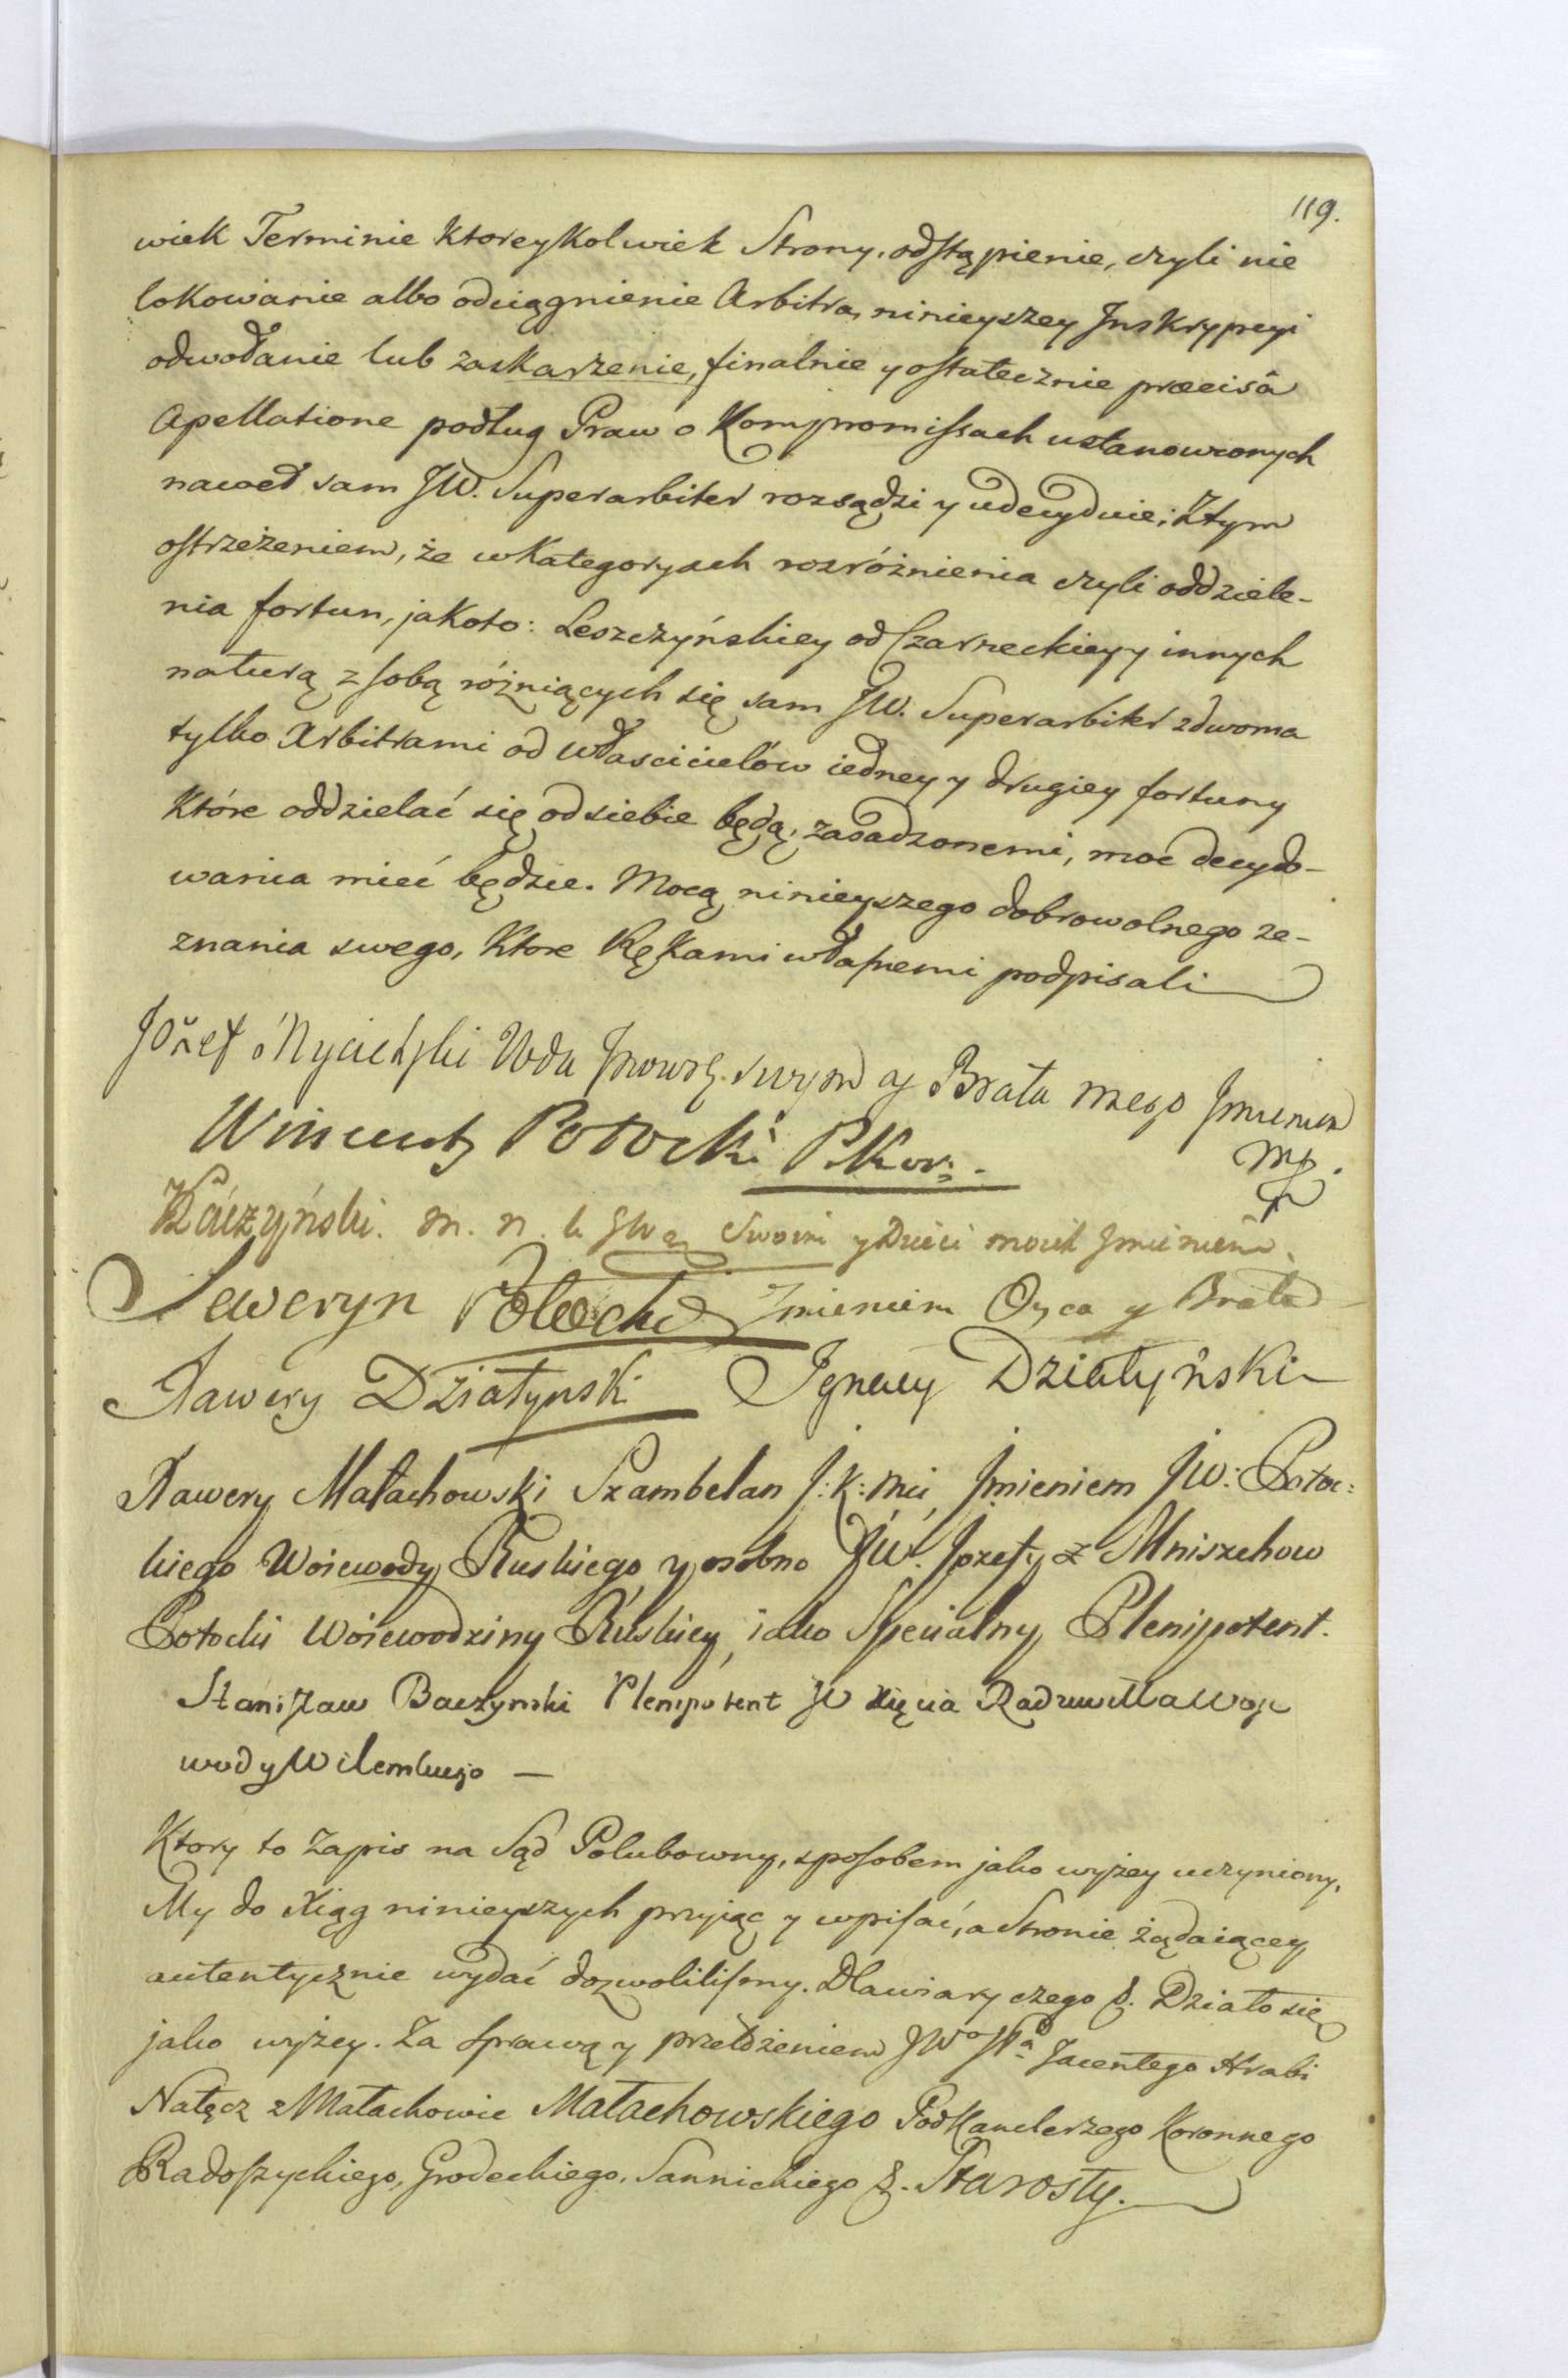 119.
wiek Terminie Ktoreykolwiek Strony, odstąpienie, czyli nie
lokowanie albo odciągnienie Arbitra, ninieyszey Jnskrypcyi
odwołanie lub zaskarzenie, finalnie y ostatecznie præcisâ
Apellatione podług Praw o Kompromissach ustanowionych
nawet sam JW. Superarbiter rozsądzi y udecyduie; Ztym
ostrzeżeniem, że w Kategoryach rozróżnienia czyli oddziele-
nia fortun, jakoto: Leszczyńskiey od Czarneckiey y innych
naturą z sobą różniących się sam JW. Superarbiter zdwoma
tylko Arbitrami od włascicielów iedney y drugiey fortuny
Które oddzielać się od siebie będą, zasadzonemi, moc decydo-
wania mieć będzie. Mocą ninieyszego dobrowolnego ze-
znania swego, Ktore Rękami własnemi podpisali
Jozef Mycielski Wda Jnowr. swym y Brata mego Jmieniem
mp.
Wincenty Potocki P.Kor: .
Raczyński. m. n. k. swoim y Dzieci moich Jmieniem.
Seweryn Potocki Jmieniem Oyca y Brata
Xawery Działynski Jgnacy Działyński
Xawery Małachowski Szambelan J: K: Mci, Jmieniem JW: Potoc:
kiego Woiewody Ruskiego y osobno JW. Jozefy z Mniszchow
Potocki Woiewodziny Ruskiey, iako Specialny Plenipotent.
Stanisław Baczynski Plenipotent JW Xięcia Radziwiłła Woje
wody Wilenskiego —
Ktory to Zapis na Sąd Polubowny, sposobem jako wyżey uczyniony,
My do Xiąg ninieyszych przyiąc y wpisać, a Stronie żądaiącey
autentycznie wydać dozwolilismy. Dla wiary czego &. Działo się
jako wyżey. Za Sprawą y przełożeniem JWo Jacentego Hrabi
Nałęcz z Małachowic Małachowskiego Podkanclerzego Koronnego
Radoszyckiego, Grodeckiego, Sannickiego &. Starosty.